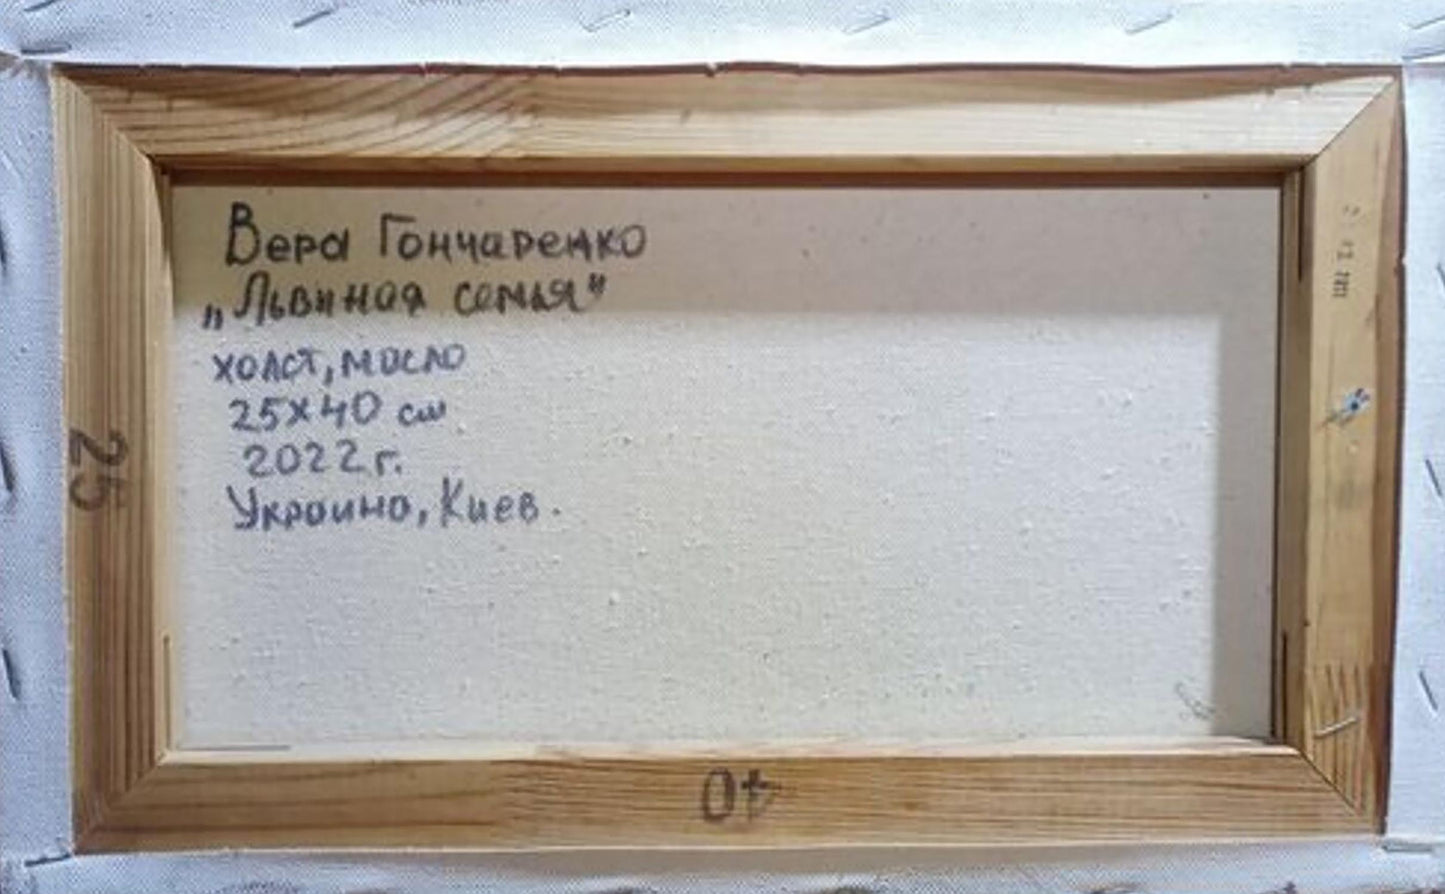 Вера Гончаренко
„Львиная семья"
холст, масло
25х40 см
2022г.
Украина, Киев.
25
40